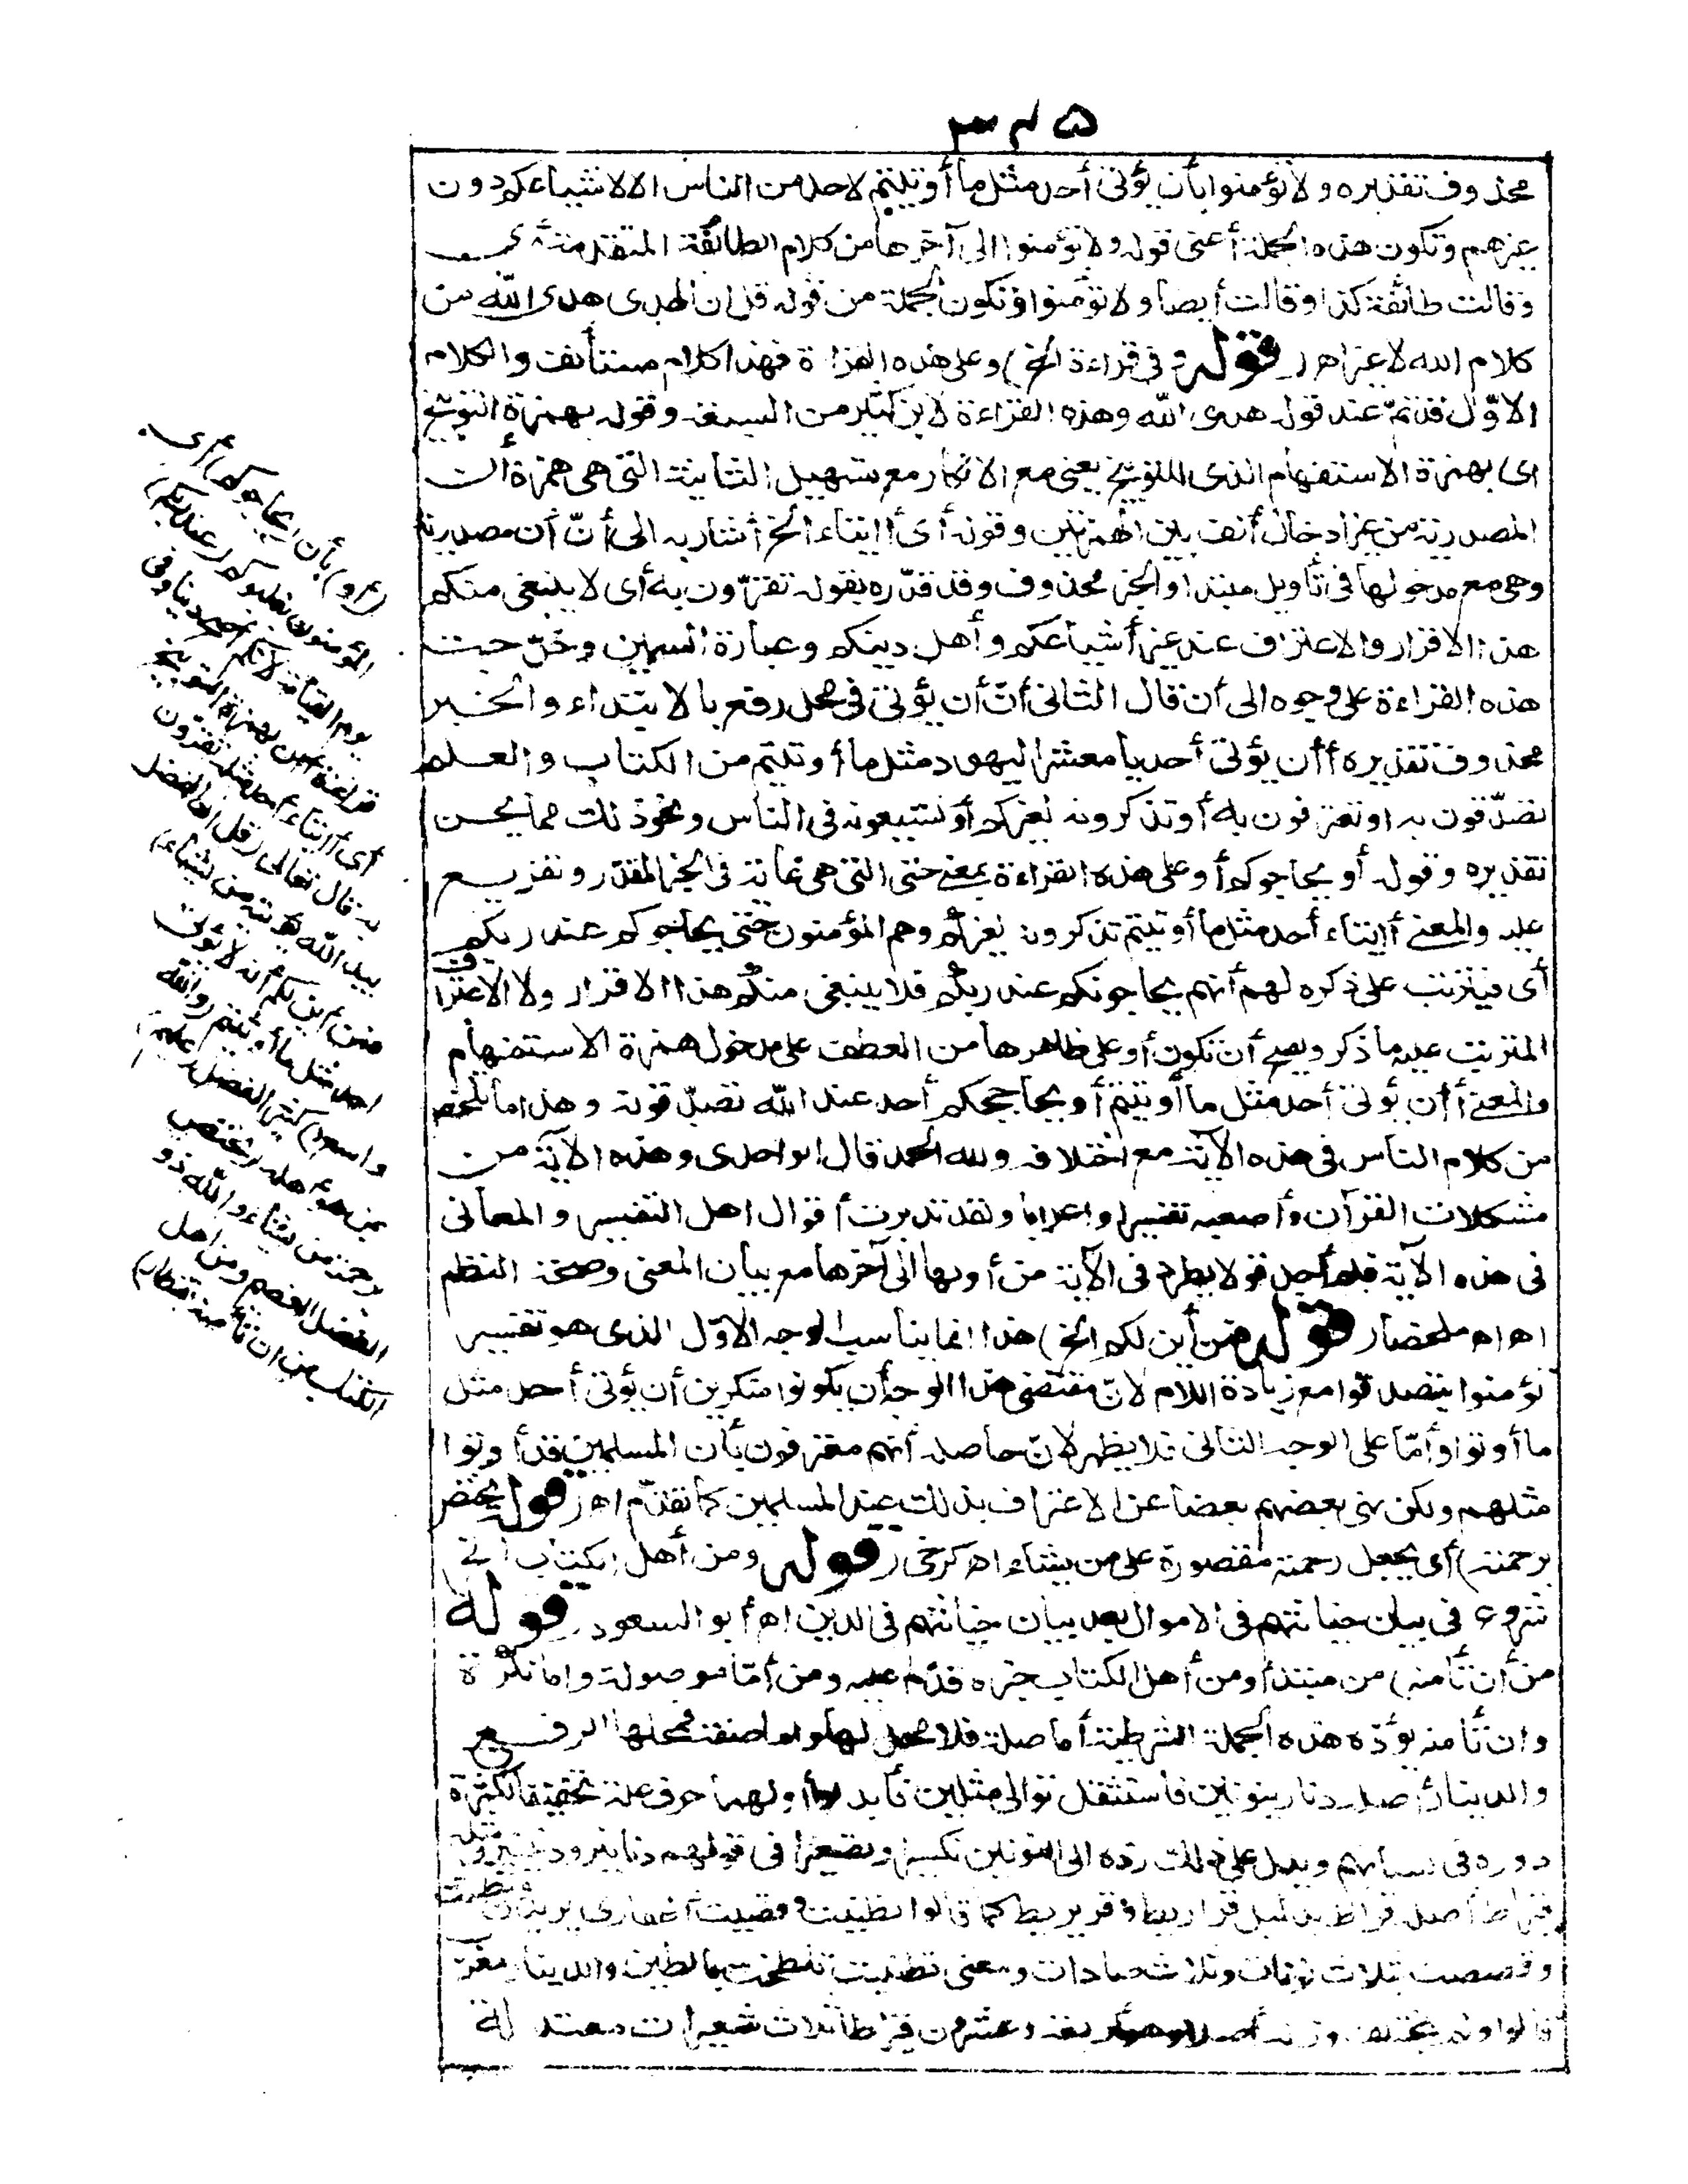 ٣٤٥
محذوف تقديره ولا تؤمنوا بأن يؤتى أحد مثل ما أوتيتم لاحد من الناس الا لاشياعكم دون
غيرهم وتكون هذه الجملة أعنى قوله ولا تؤمنوا الى آخرها من كلام الطائفة المتقدمة أى
وقالت طائفة كذا وقالت أيضا ولا تؤمنوا وتكون الجملة من قوله قل ان الهدى هدى الله من
كلام الله لا غير اهـ (قوله وفى قراءة الخ) وعلى هذه القراءة فهذا كلام مستأنف والكلام
الاوّل قد تمّ عند قوله هدى الله وهذه القراءة لابن كثير من السبعة وقوله بهمزة التوبيخ
اى بهمزة الاستفهام الذى للتوبيخ يعنى مع الانكار مع تسهيل الثانية التى هى همزة أن
المصدرية من غير ادخال ألف بين الهمزتين وقوله أى أايتاء الخ أشار به الى أنّ أن مصدرية
وهى مع مدخولها فى تأويل مبتدا والخبر محذوف وقد قدّره بقوله تقرّون به أى لا ينبغى منكم
هذا الاقرار والاعتراف عند غير أشياعكم وأهل دينكم وعبارة السمين وخرّجت
هذه القراءة على وجوه الى أن قال الثانى أنّ أن يؤتى فى محل رفع بالابتداء والخبر
محذوف تقديره أأن يؤتى أحد يا معشر اليهود مثل ما أوتيتم من الكتاب والعلم
تصدّقون به او تعترفون به أو تذكرونه لغيركم أو تشيعونه فى الناس ونحو ذلك مما يحسن
تقديره وقوله أو يحاجوكم أو على هذه القراءة بمعنى حتى التى هى غاية فى الخبر المقدّر وتفريع
عليه والمعنى أايتاء أحد مثل ما أوتيتم تذكرونه لغيركم وهم المؤمنون حتى يحاجوكم عند ربكم
أى فيترتب على ذكره لهم أنهم يحاجونكم عند ربكم فلا ينبغى منكم هذا الاقرار ولا الاعتراف
المترتب عليه ما ذكر ويصح أن تكون أو على ظاهرها من العطف على مدخول همزة الاستفهام
والمعنى أأن يؤتى أحد مثل ما أوتيتم أو يحاججكم أحد عند الله تصدّقونه وهذا ما تلخص
من كلام الناس فى هذه الآية مع اختلافه ولله الحمد قال الواحدى وهذه الآية من
مشكلات القرآن وأصعبه تفسيرا واعرابا ولقد تدبرت أقوال اهل التفسير والمعانى
فى هذه الآية فلم أجد قولا يطرد فى الآية من أولها الى آخرها مع بيان المعنى وصحة النظم
اهـ اهـ ملخصا (قوله فمن أين لكم الخ) هذا انما يناسب الوجه الاوّل الذى هو تفسير
تؤمنوا بتصدقوا مع زيادة اللام لانّ مقتضى هذا الوجه أن يكونوا منكرين أن يؤتى أحد مثل
ما أوتوا وأمّا على الوجه الثانى فلا يظهر لانّ حاصله أنهم معترفون بأن المسلمين قد أوتوا
مثلهم ولكن نهى بعضهم بعضا عن الاعتراف بذلك عند المسلمين كما تقدّم اهـ (قوله يختص
برحمته) أى يجعل رحمته مقصورة على من يشاء اهـ كرخى (قوله ومن أهل الكتاب الخ
شروع فى بيان خيانتهم فى الاموال بعد بيان خيانتهم فى الدين اهـ أبو السعود قوله
من أن تأمنه) من مبتدأ ومن أهل الكتاب خبره قدّم عليه ومن امّا موصولة واما نكرة
وان تأمنه يؤدّه هذه الجملة الشرطية أما صلة فلا محل لها واما صفة فمحلها الرفع
والدينار أصله دنار بنونين فاستثقل توالى مثلين فأبدلوا أولهما حرف علة تخفيفا لكثرة
دوره فى لسانهم ويدل على ذلك ردّه الى النونين تكسيرا وتصغيرا فى قولهم دنانير ودنينير ومثله
قيراط أصله قراط بدليل قراريط وقريريط كما قالوا تظنيت وقصيت أظفارى يريدون تظننت
وقصصت بثلاث نونات وثلاث صادات ومعنى والدينار معرّب
قالوا ولم يختلف وزنه أصلا وهو أربعة وعشرون قيراطا ثلاث شعيرات معتدلة
(أو) بأن (يحاجوكم) أى
المؤمنون يغلبوكم (عند ربكم)
يوم القيامة لانكم أصح دينا وفى
قراءة أأن بهمزة التوبيخ
أى أايتاء أحد مثله تقرّون
به قال تعالى (قل ان الفضل
بيد الله يؤتيه من يشاء)
فمن أين لكم أنه لا يؤتى
احد مثل ما أوتيتم (والله
واسع) كثير الفضل (عليم)
بمن هو أهله (يختص
برحمته من يشاء والله ذو
الفضل العظيم ومن اهل
الكتاب من ان تأمنه بقنطار)